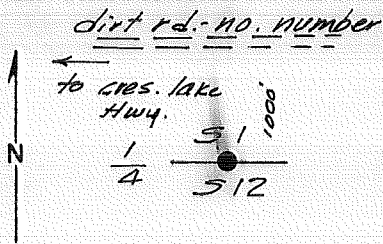 dirt rd.- no. number
to cres. lake
Hwy.
1000'
N
1/4
S 1
S 12